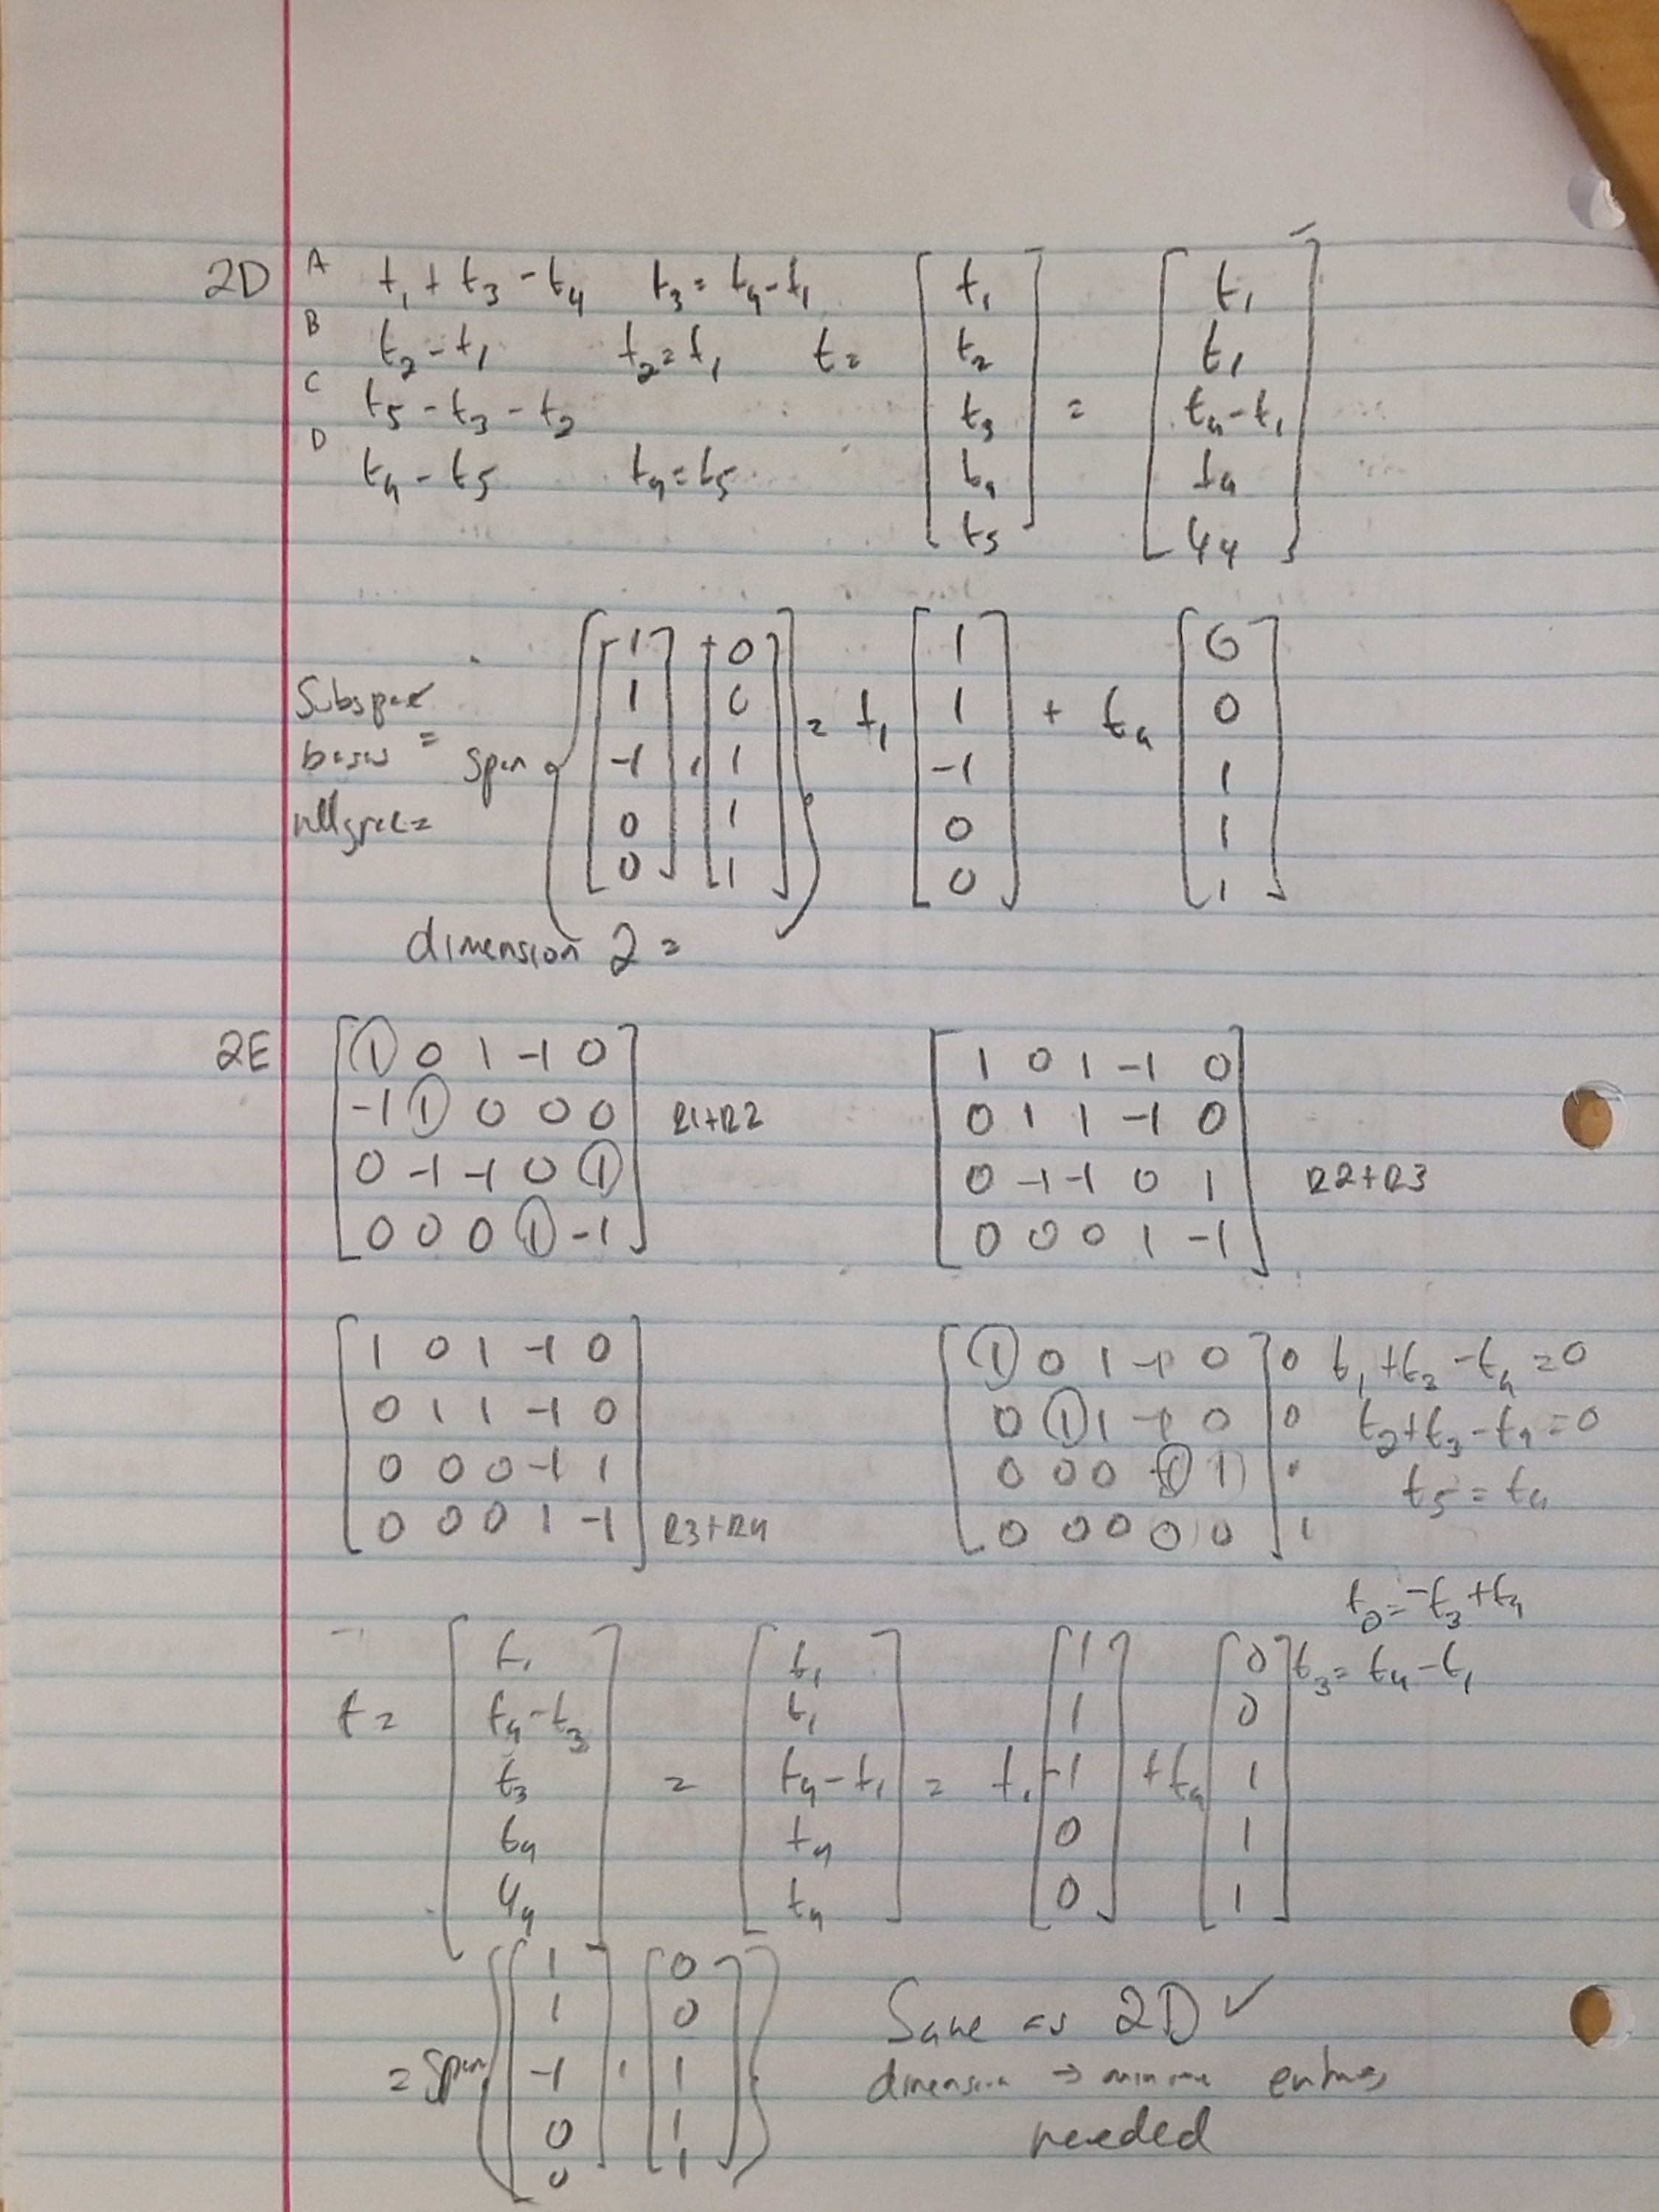 2D A t₁ + t₃ - t₄ t₃ = t₄ - t₁
B t₂ - t₁ t₂ = t₁ t =
C t₅ - t₃ - t₂
D t₄ - t₅ t₄ = t₅
[t₁ t₂ t₃ t₄ t₅] = [t₁ t₁ t₄-t₁ t₄ t₄]
Subspace
basis =
nullspace =
span { [1 1 -1 0 0] , [0 0 1 1 1] } = t₁ [1 1 -1 0 0] + t₄ [0 0 1 1 1]
dimension 2 =
2E
1 0 1 -1 0
-1 1 0 0 0 R1+R2
0 -1 -1 0 1
0 0 0 1 -1
1 0 1 -1 0
0 1 1 -1 0
0 -1 -1 0 1 R2+R3
0 0 0 1 -1
1 0 1 -1 0
0 1 1 -1 0
0 0 0 -1 1
0 0 0 1 -1 R3+R4
1 0 1 -1 0 | 0 t₁ + t₃ - t₄ = 0
0 1 1 -1 0 | 0 t₂ + t₃ - t₄ = 0
0 0 0 -1 1 t₅ = t₄
0 0 0 0 0
t₂ = -t₃ + t₄
t₃ = t₄ - t₁
t = [t₁ t₄-t₃ t₃ t₄ t₄] = [t₁ t₁ t₄-t₁ t₄ t₄] = t₁ [1 1 -1 0 0] + t₄ [0 0 1 1 1]
= Span { [1 1 -1 0 0] , [0 0 1 1 1] }
Same as 2D ✓
dimension →
needed